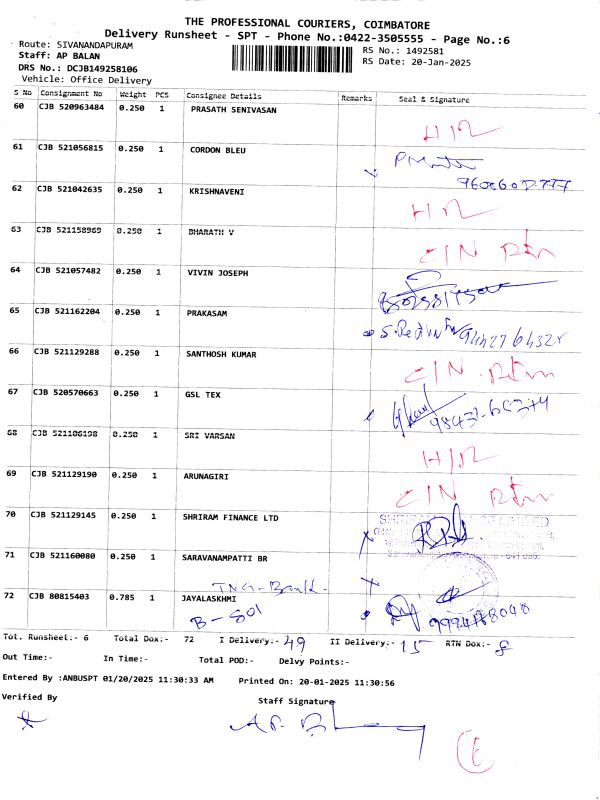 THE PROFESSIONAL COURIERS, COIMBATORE
Delivery Runsheet - SPT - Phone No.:0422-3505555 - Page No.:6
Route: SIVANANDAPURAM
Staff: AP BALAN
DRS No.: DCJB149258106
Vehicle: Office Delivery
RS No.: 1492581
RS Date: 20-Jan-2025
S No Consignment No Weight PCS Consignee Details Remarks Seal & Signature
60 CJB 520963484 0.250 1 PRASATH SENIVASAN
61 CJB 521056815 0.250 1 CORDON BLEU
62 CJB 521042635 0.250 1 KRISHNAVENI
63 CJB 521158969 0.250 1 BHARATH V C/N Rtn
64 CJB 521057482 0.250 1 VIVIN JOSEPH
65 CJB 521162204 0.250 1 PRAKASAM
66 CJB 521129288 0.250 1 SANTHOSH KUMAR C/N Rtn
67 CJB 520570663 0.250 1 GSL TEX
68 CJB 521106198 0.250 1 SRI VARSAN
69 CJB 521129190 0.250 1 ARUNAGIRI C/N Rtn
70 CJB 521129145 0.250 1 SHRIRAM FINANCE LTD
71 CJB 521160080 0.250 1 SARAVANAMPATTI BR
Bank
72 CJB 80815403 0.785 1 JAYALASKHMI
B-801
Tot. Runsheet:- 6 Total Dox:- 72 I Delivery:- 49 II Delivery:- 15 RTN Dox:- 8
Out Time:- In Time:- Total POD:- Delvy Points:-
Entered By :ANBUSPT 01/20/2025 11:30:33 AM Printed On: 20-01-2025 11:30:56
Verified By
Staff Signature